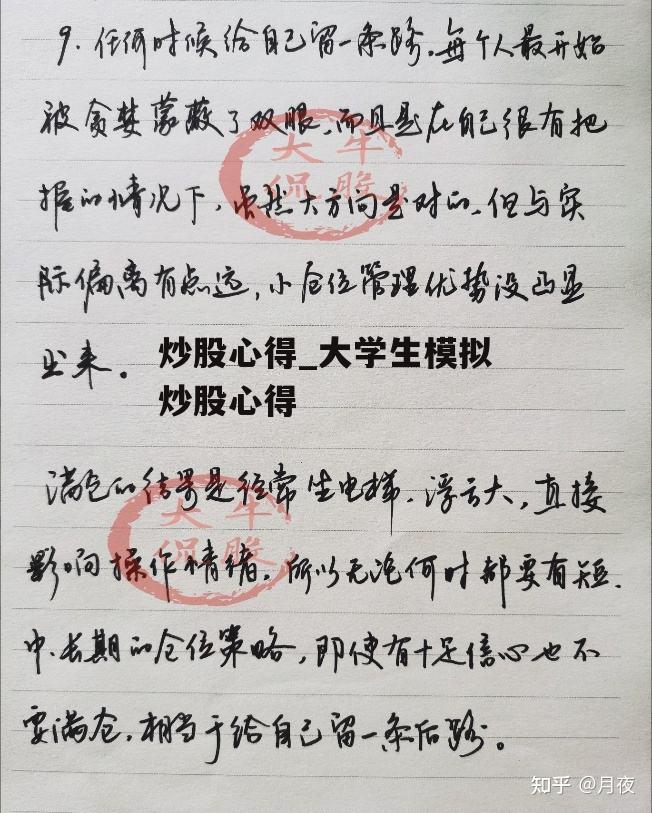 9. 任何时候给自己留一条路。每个人最开始
被贪婪蒙蔽了双眼,而且是在自己很有把
大牛
侃股
握的情况下,虽然大方向是对的、但与实
际偏离有点远,小仓位管理优势没凸显
出来。
炒股心得_大学生模拟
炒股心得
满仓的结果是经常坐电梯、浮亏大,直接
大牛
侃股
影响操作情绪。所以无论何时都要有短、
中、长期的仓位策略,即使有十足信心也不
要满仓,相当于给自己留一条后路。
知乎 @月夜